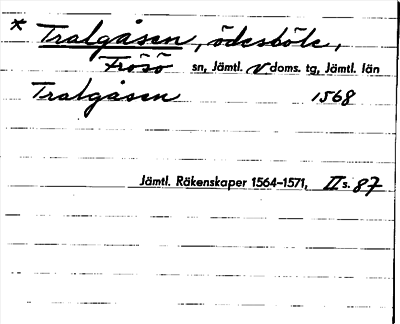 * Tralgåsen, ödesböle,
Frösö sn, Jämtl. V doms. tg, Jämtl. län
Tralgåsen 1568
Jämtl. Räkenskaper 1564–1571, II s. 87